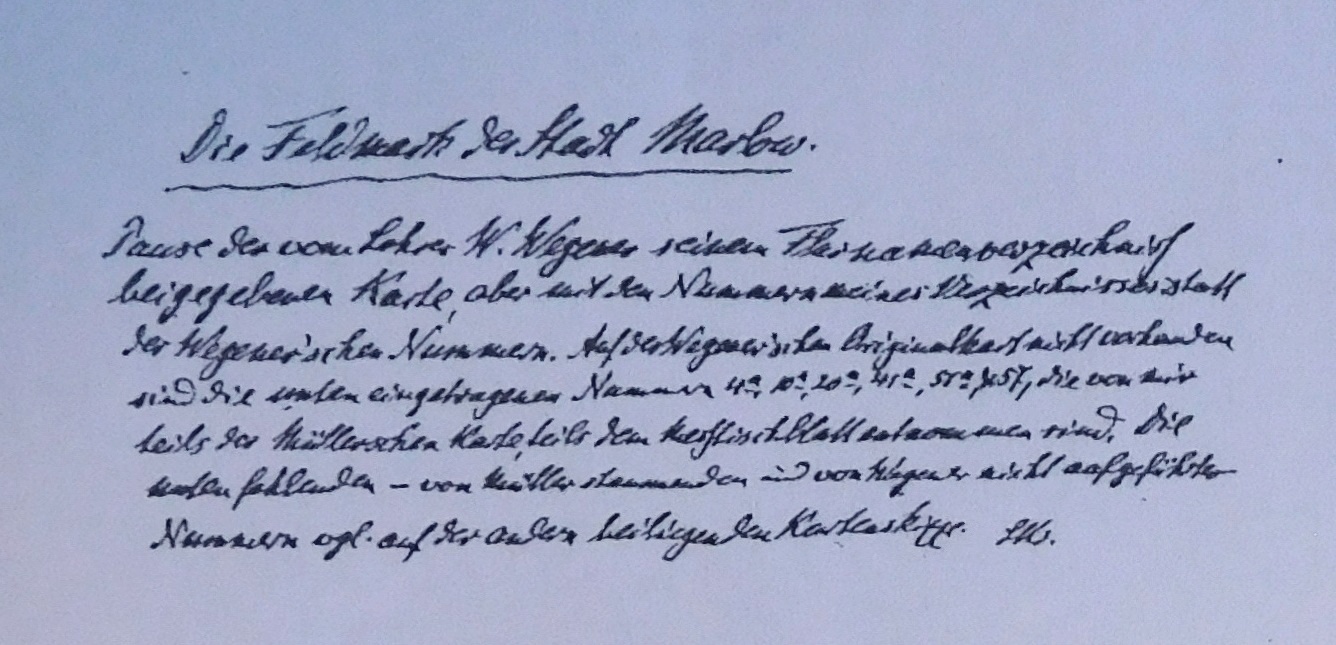 Die Feldmark der Stadt Marlow.
Pause der vom Lehrer W. Wegener seinem Flurnamenverzeichnis
beigegebenen Karte, aber mit den Nummern meines Verzeichnisses statt
der Wegener'schen Nummern. Auf der Wegener'schen Originalkart nicht vorhanden
sind die unten eingetragenen Nummern 4a, 10a, 20a, 41a, 51a, 57, die von mir
teils der Müllerschen Karte, teils dem Meßtischblatt entnommen sind. Die
unten fehlenden – von Müller stammenden und von Wegener nicht aufgeführten
Nummern vgl. auf der andern beiliegenden Kartenskizze.